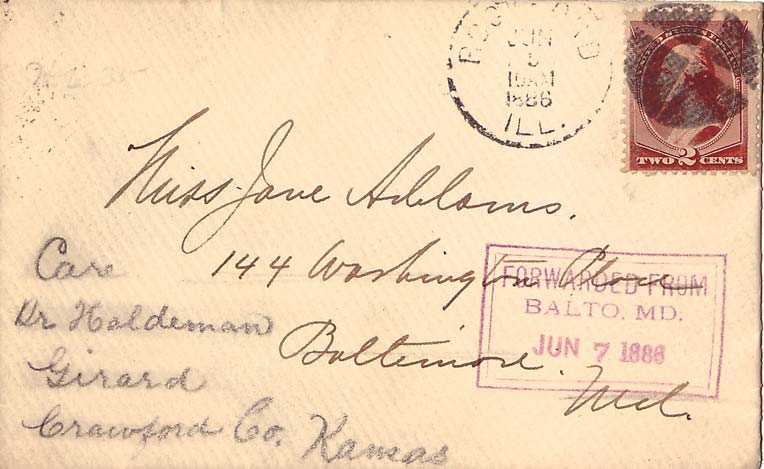 ROCKFORD
JUN
5
10AM
1886
ILL.
TWO 2 CENTS
Miss Jane Addams.
144 Washington Place
Baltimore.
Md.
FORWARDED FROM
BALTO. MD.
JUN 7 1886
Care
Dr Haldeman
Girard
Crawford Co. Kansas